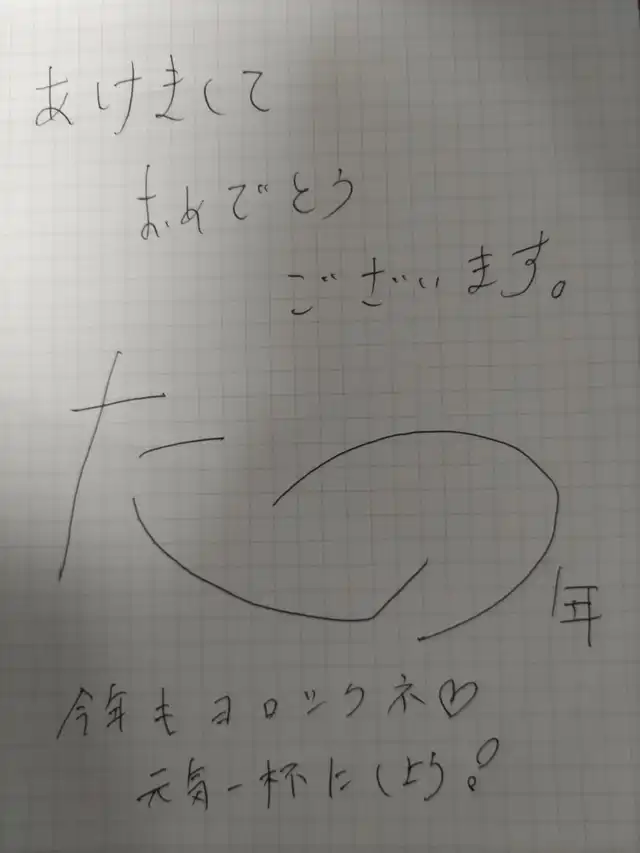 あけまして
おめでとう
ございます。
たつ年
今年もヨロシクネ♡
元気一杯にしよう!